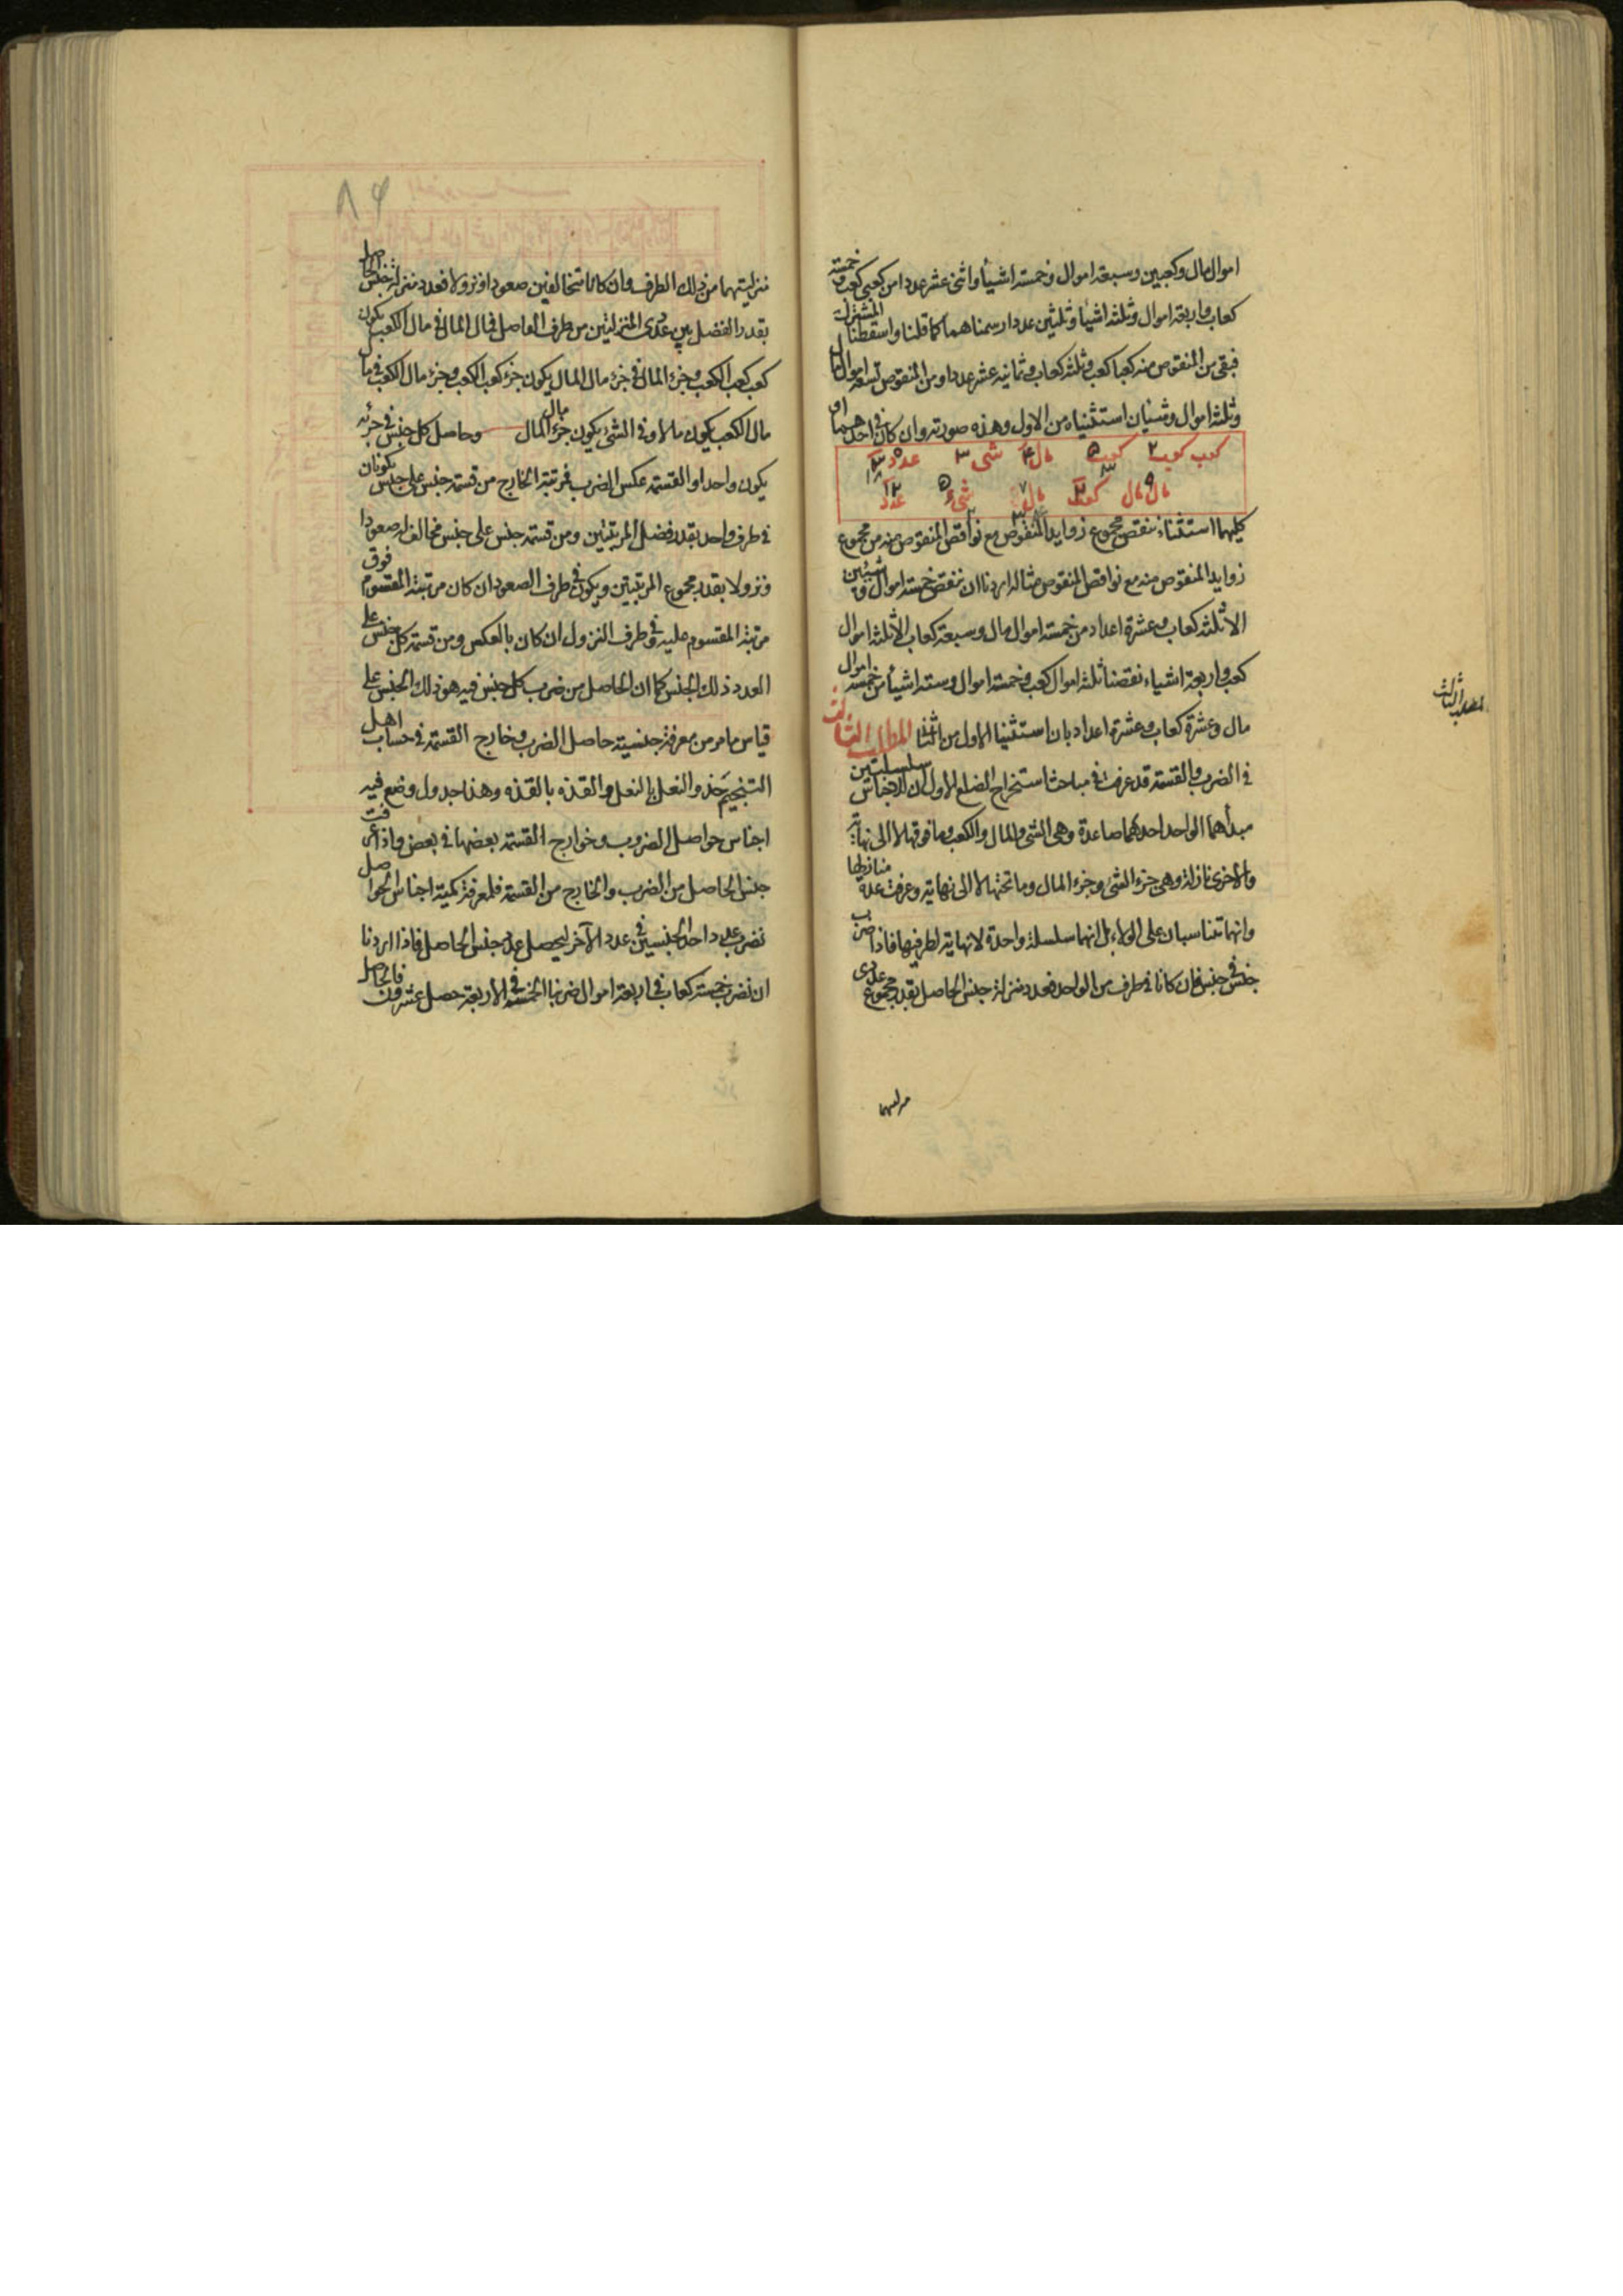 اموال مال وكعبين وسبعة اموال وخمسة اشيأ واثنى عشر عددا من كعبى كعب وخمسة
كعاب واربعة اموال وثلثة اشيأ وثلثين عددا رسمناهما كما قلنا واسقطنا المشترك
فبقى من المنقوص منه كعبا كعب وثلثة كعاب وثمانية عشر عددا ومن المنقوص تسعة اموال مال
وثلثة اموال وشيئان استثنيناه من الاول وهذه صورته وان كان فى احدهما او
كعب كعب ٢ كعب ٥ مال ٤ شى ٣ عدد
مال مال ٩ كعب ٢ مال ٧ شى ٥ عدد ١٢
كليهما استثناء ننقص مجموع زوايد المنقوص مع نواقص المنقوص منه من مجموع
زوايد المنقوص منه مع نواقص المنقوص مثاله اردنا ان ننقص خمسة اموال وشيئين
الا ثلثة كعاب وعشرة اعداد من خمسة اموال مال وسبعة كعاب الا ثلثة اموال
كعب واربعة اشياء نقصنا ثلثة اموال كعب وخمسة اموال وستة اشيأ من خمسة اموال
مال وعشرة كعاب وعشرة اعداد بان استثنينا الاول من الثانى المطلب الثالث
فى الضرب والقسمة قد عرفت فى مباحث استخراج الضلع الاول ان للاجناس سلسلتين
مبدأهما الواحد احدهما صاعدة وهى الشى والمال والكعب وما فوقها لا الى نهاية
والاخرى نازلة وهى جزء الشى وجزء المال وما تحتها لا الى نهاية وعرفت عدة منازلها
وانهما تتناسبان على الولاء بل انهما سلسلة واحدة لا نهاية لطرفيها فاذا ضرب
جنس فى جنس فان كانا فى طرف من الواحد فعدد منزلة جنس الحاصل بقدر مجموع عددى
منزلتيهما
المطلب الثالث
٨٤
منزلتيهما من ذلك الطرف وان كانا متخالفين صعودا ونزولا فعدد منزلة جنس الحاصل
بقدر الفضل بين عددى المنزلتين من طرف الفاضل فمال المال فى مال الكعب يكون
كعب كعب الكعب وجزء المال فى جزء مال المال يكون جزء كعب الكعب وجزء مال الكعب فى مال
مال الكعب يكون مالا وفى الشى يكون جزء مال المال وحاصل كل جنس فى جزئه
يكون واحدا والقسمة عكس الضرب فمرتبة الخارج من قسمة جنس على جنس يكونان
فى طرف واحد بقدر فضل المرتبتين ومن قسمة جنس على جنس مخالف له صعودا
ونزولا بقدر مجموع المرتبتين ويكون فى طرف الصعود ان كان مرتبة المقسوم فوق
مرتبة المقسوم عليه وفى طرف النزول ان كان بالعكس ومن قسمة كل جنس على
العدد ذلك الجنس كما ان الحاصل من ضرب كل جنس فيه هو ذلك الجنس على
قياس ما مر من معرفة جنسية حاصل الضرب وخارج القسمة فى حساب اهل
التنجيم حذو النعل بالنعل والقذه بالقذه وهذا جدول وضع فيه
اجناس حواصل الضروب وخوارج القسمة بعضها فى بعض واذا عرفت
جنس الحاصل من الضرب والخارج من القسمة فلمعرفة كمية اجناس الحواصل
نضرب عدد احد الجنسين فى عدد الآخر ليحصل عدد جنس الحاصل فاذا اردنا
ان نضرب خمسة كعاب فى اربعة اموال ضربنا الخمسة فى الاربعة حصل عشرون فالحاصل